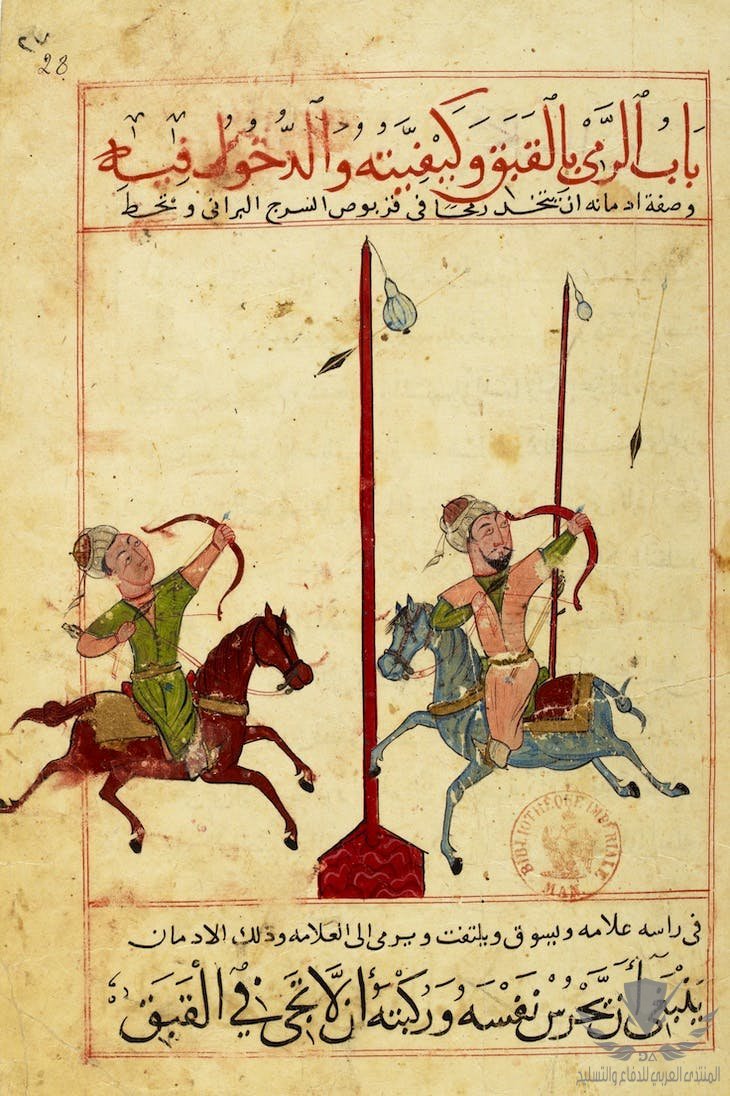 ٢٧
28
بَابُ الرَّمْيِ بِالْقَبَقِ وَكَيْفِيَّتِهِ وَالدُّخُولِ فِيهِ
وصفة ادمانه ان يتخذ رمحًا في قربوص السرج البراني ويحط
في راسه علامه ويسوق ويلتفت ويرمى الى العلامه وذلك الادمان
يَنْبَغِي أَنْ يَحْرُسَ نَفْسَهُ وَرُكْبَتَهُ أَنْ لَا تَجِي فِي الْقَبَقِ
BIBLIOTHÈQUE IMPÉRIALE
MAN.
DA
المنتدى العربي للدفاع والتسليح